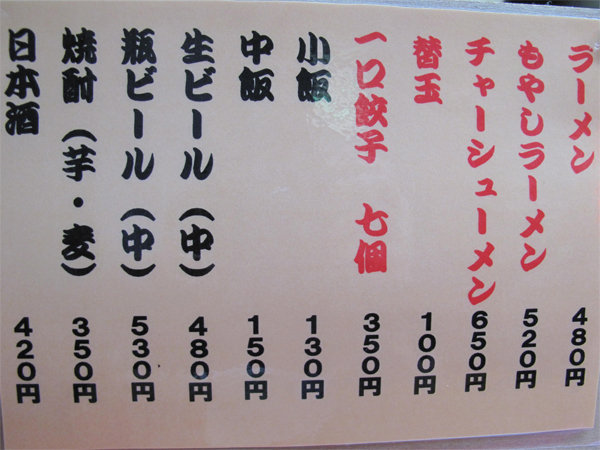 ラーメン 480円
もやしラーメン 520円
チャーシューメン 650円
替玉 100円
一口餃子 七個 350円
小飯 130円
中飯 150円
生ビール(中) 480円
瓶ビール(中) 530円
焼酎(芋・麦) 350円
日本酒 420円